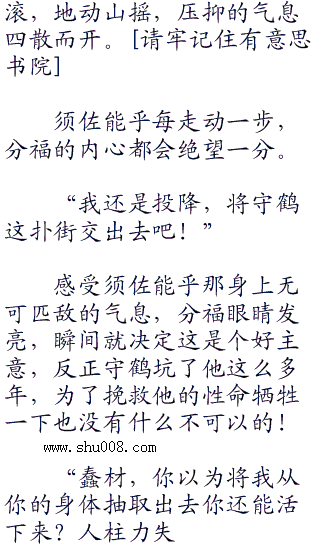 滚，地动山摇，压抑的气息
四散而开。[请牢记住有意思
书院]
须佐能乎每走动一步，
分福的内心都会绝望一分。
“我还是投降，将守鹤
这扑街交出去吧！”
感受须佐能乎那身上无
可匹敌的气息，分福眼睛发
亮，瞬间就决定这是个好主
意，反正守鹤坑了他这么多
年，为了挽救他的性命牺牲
一下也没有什么不可以的！
www.shu008.com
“蠢材，你以为将我从
你的身体抽取出去你还能活
下来？人柱力失